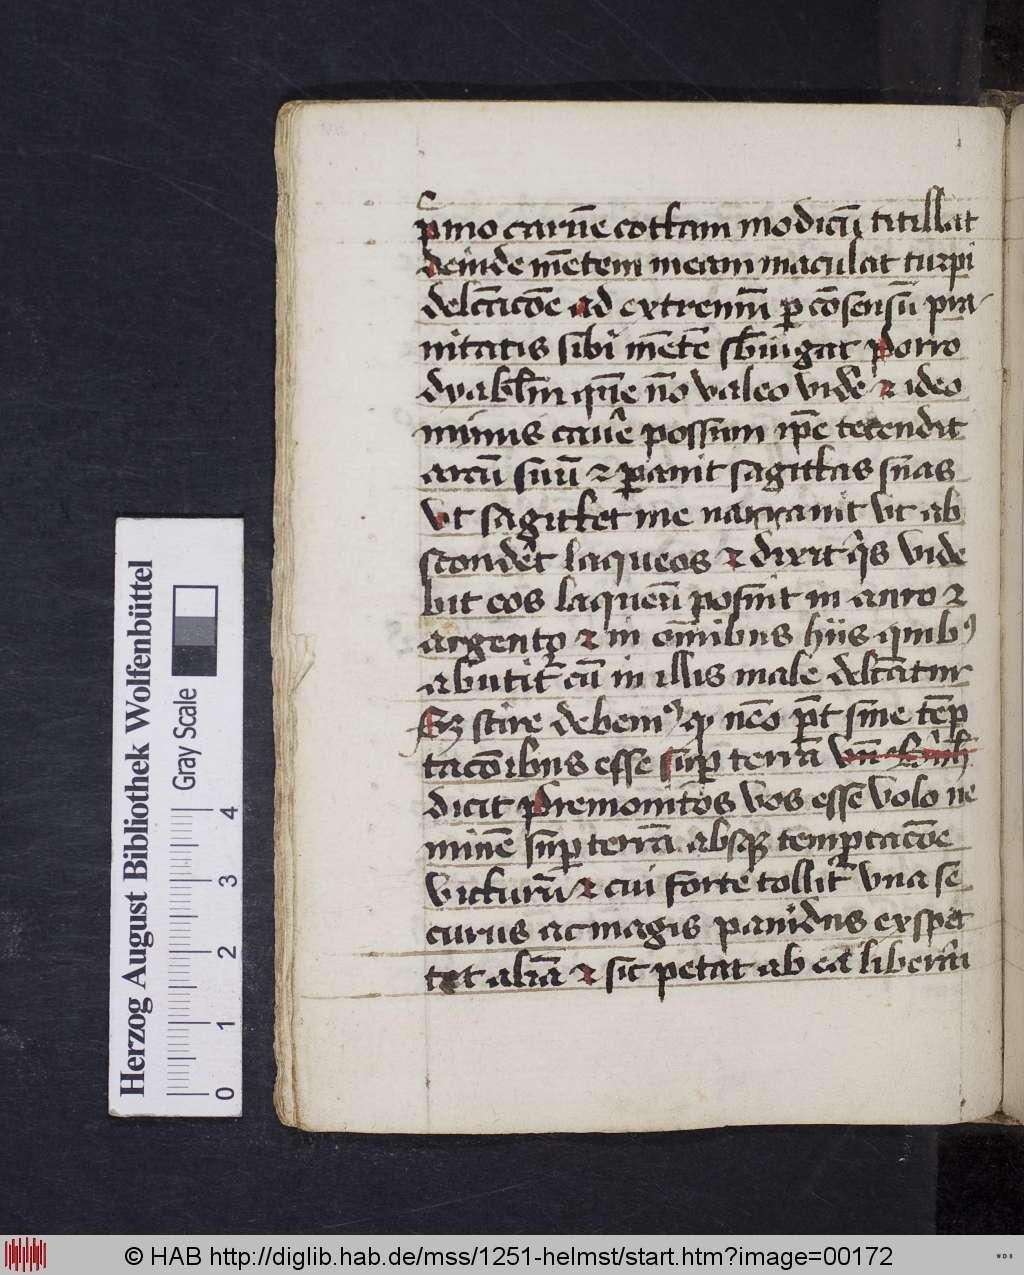 p̄mo carnē cottam modicū titillat
deinde mētem meam maculat turpi
delc̄acōe ad extremū p cōsensū pra-
nitatis sibi mētē sb̄iugat Porro
dyabl̄m quē nō valeo videre et ideo
minus cauē possum ip̄e tetendit
arcū suū et parauit sagittas suas
vt sagittet me narrauit vt ab
scondēt laqueos et dixit qis vide
bit eos laqueū posuit in auro et
argento et in om̄ibus hiis quibꝰ
abutit᷑ cū in illis male delc̄atur
Sꝫ scire debemꝰ ꝙ nēo pt̄ sine tēp
tacōibus esse sup terrā
dicit Premonitos vos esse volo ne
minē sup terrā absqꝫ temptacōe
victurū et cui forte tollit᷑ vna se
curus ac magis pauidus exspec
tet aliā et sic petat ab ea liberari
Herzog August Bibliothek Wolfenbüttel
Gray Scale
0 1 2 3 4
© HAB http://diglib.hab.de/mss/1251-helmst/start.htm?image=00172